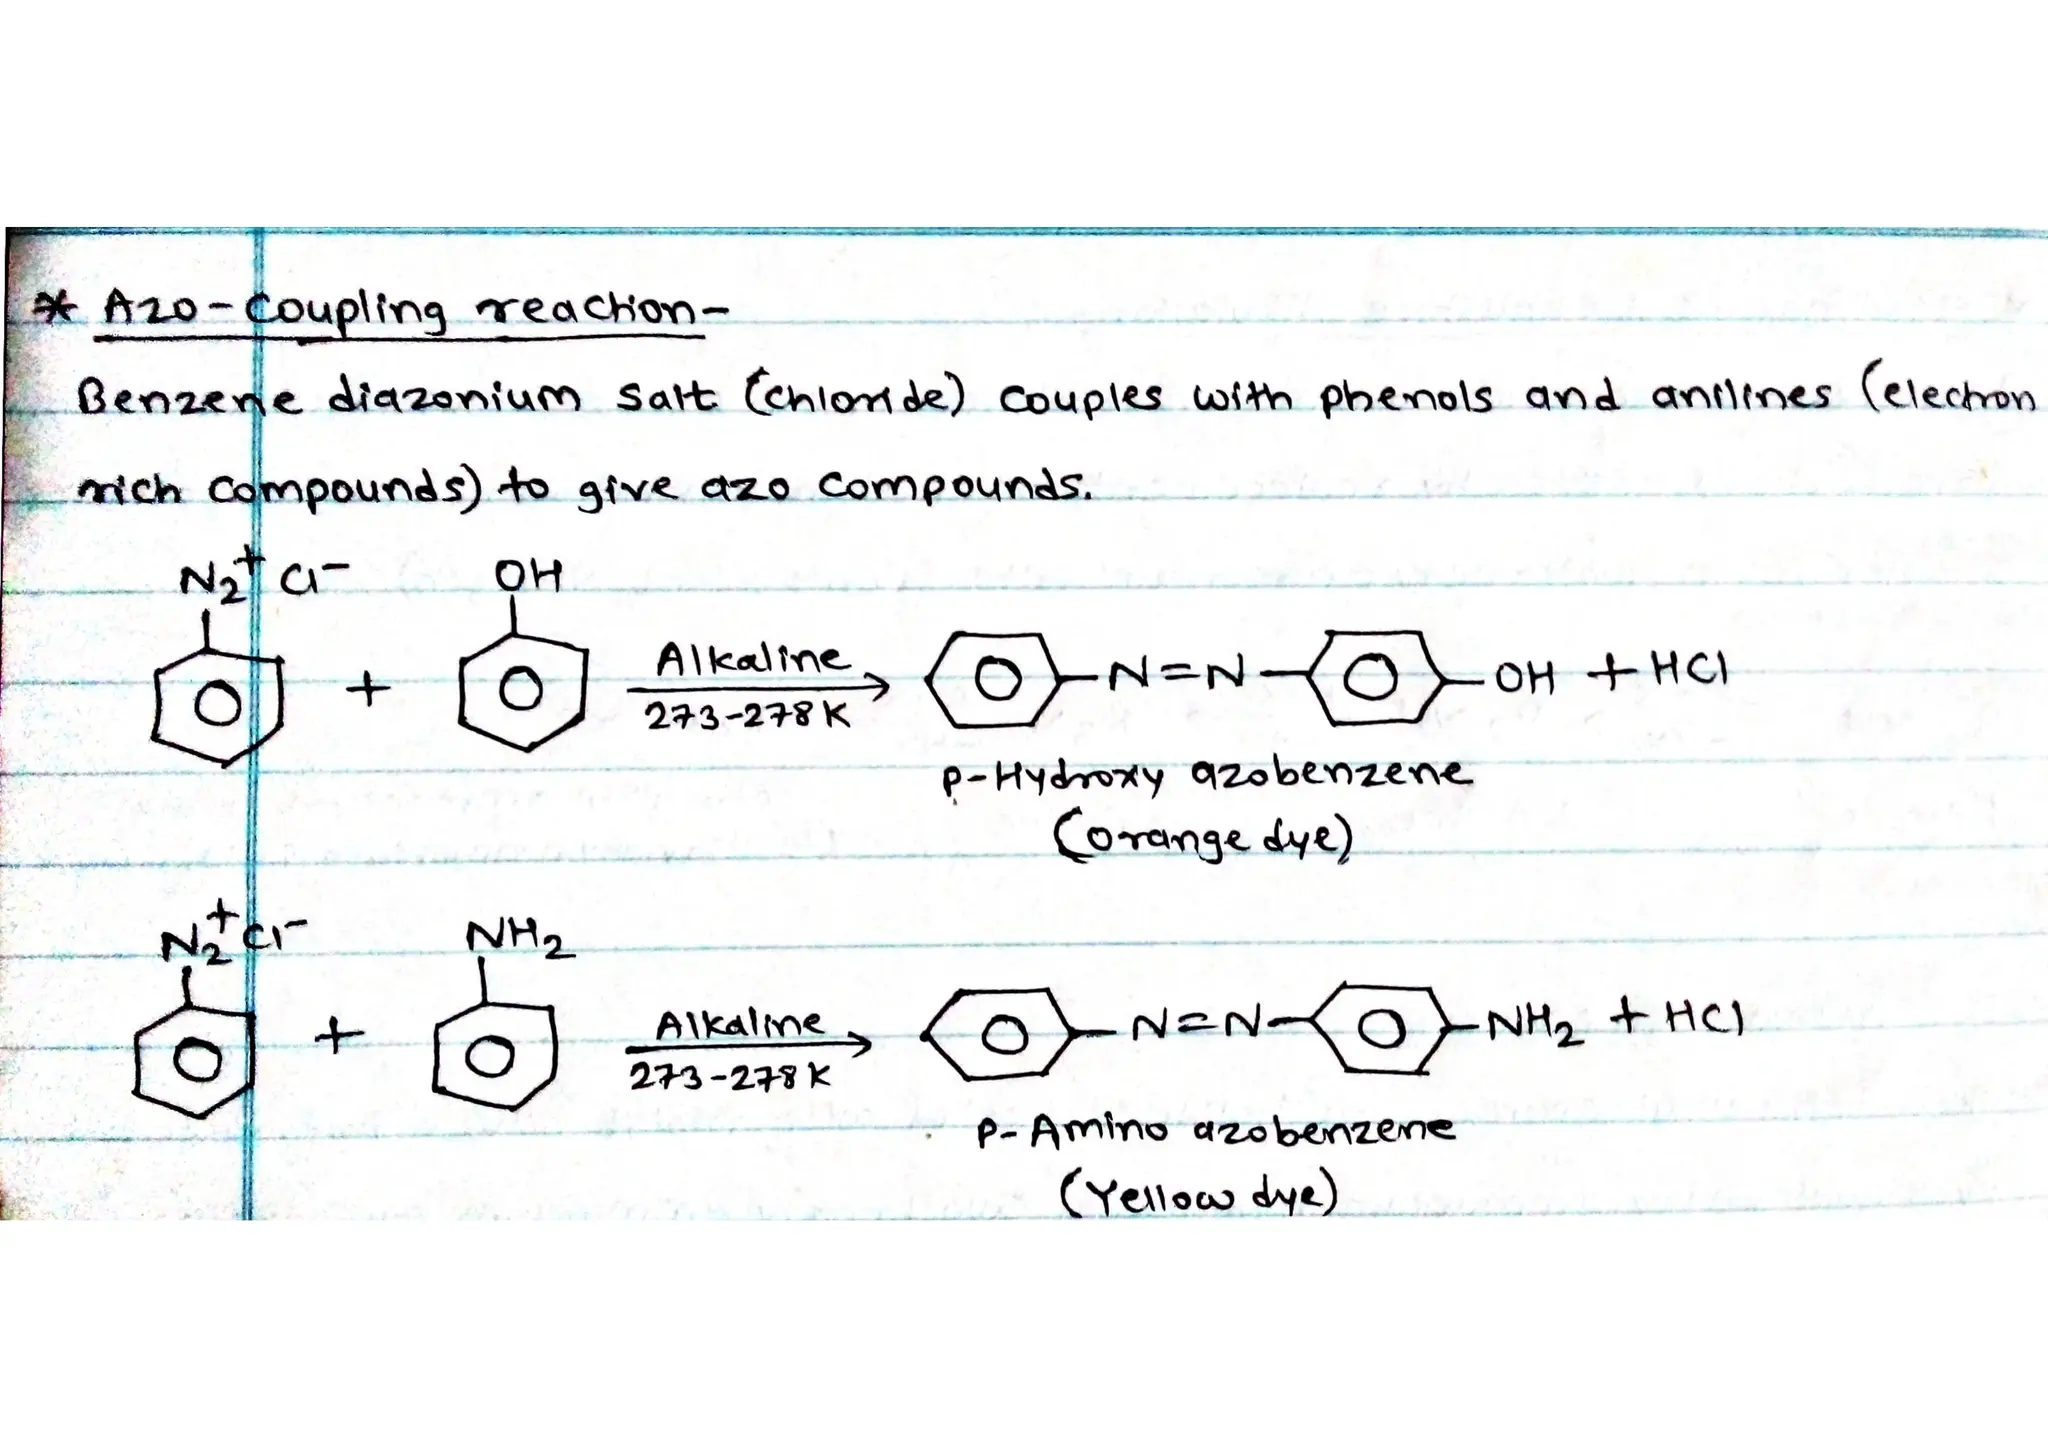 * Azo-Coupling reaction-
Benzene diazonium salt (chloride) couples with phenols and anilines (electron
rich compounds) to give azo compounds.
N₂⁺Cl⁻ OH
+ Alkaline 273-278K N=N OH + HCl
p-Hydroxy azobenzene
(orange dye)
N₂⁺Cl⁻ NH₂
+ Alkaline 273-278K N=N NH₂ + HCl
P-Amino azobenzene
(Yellow dye)